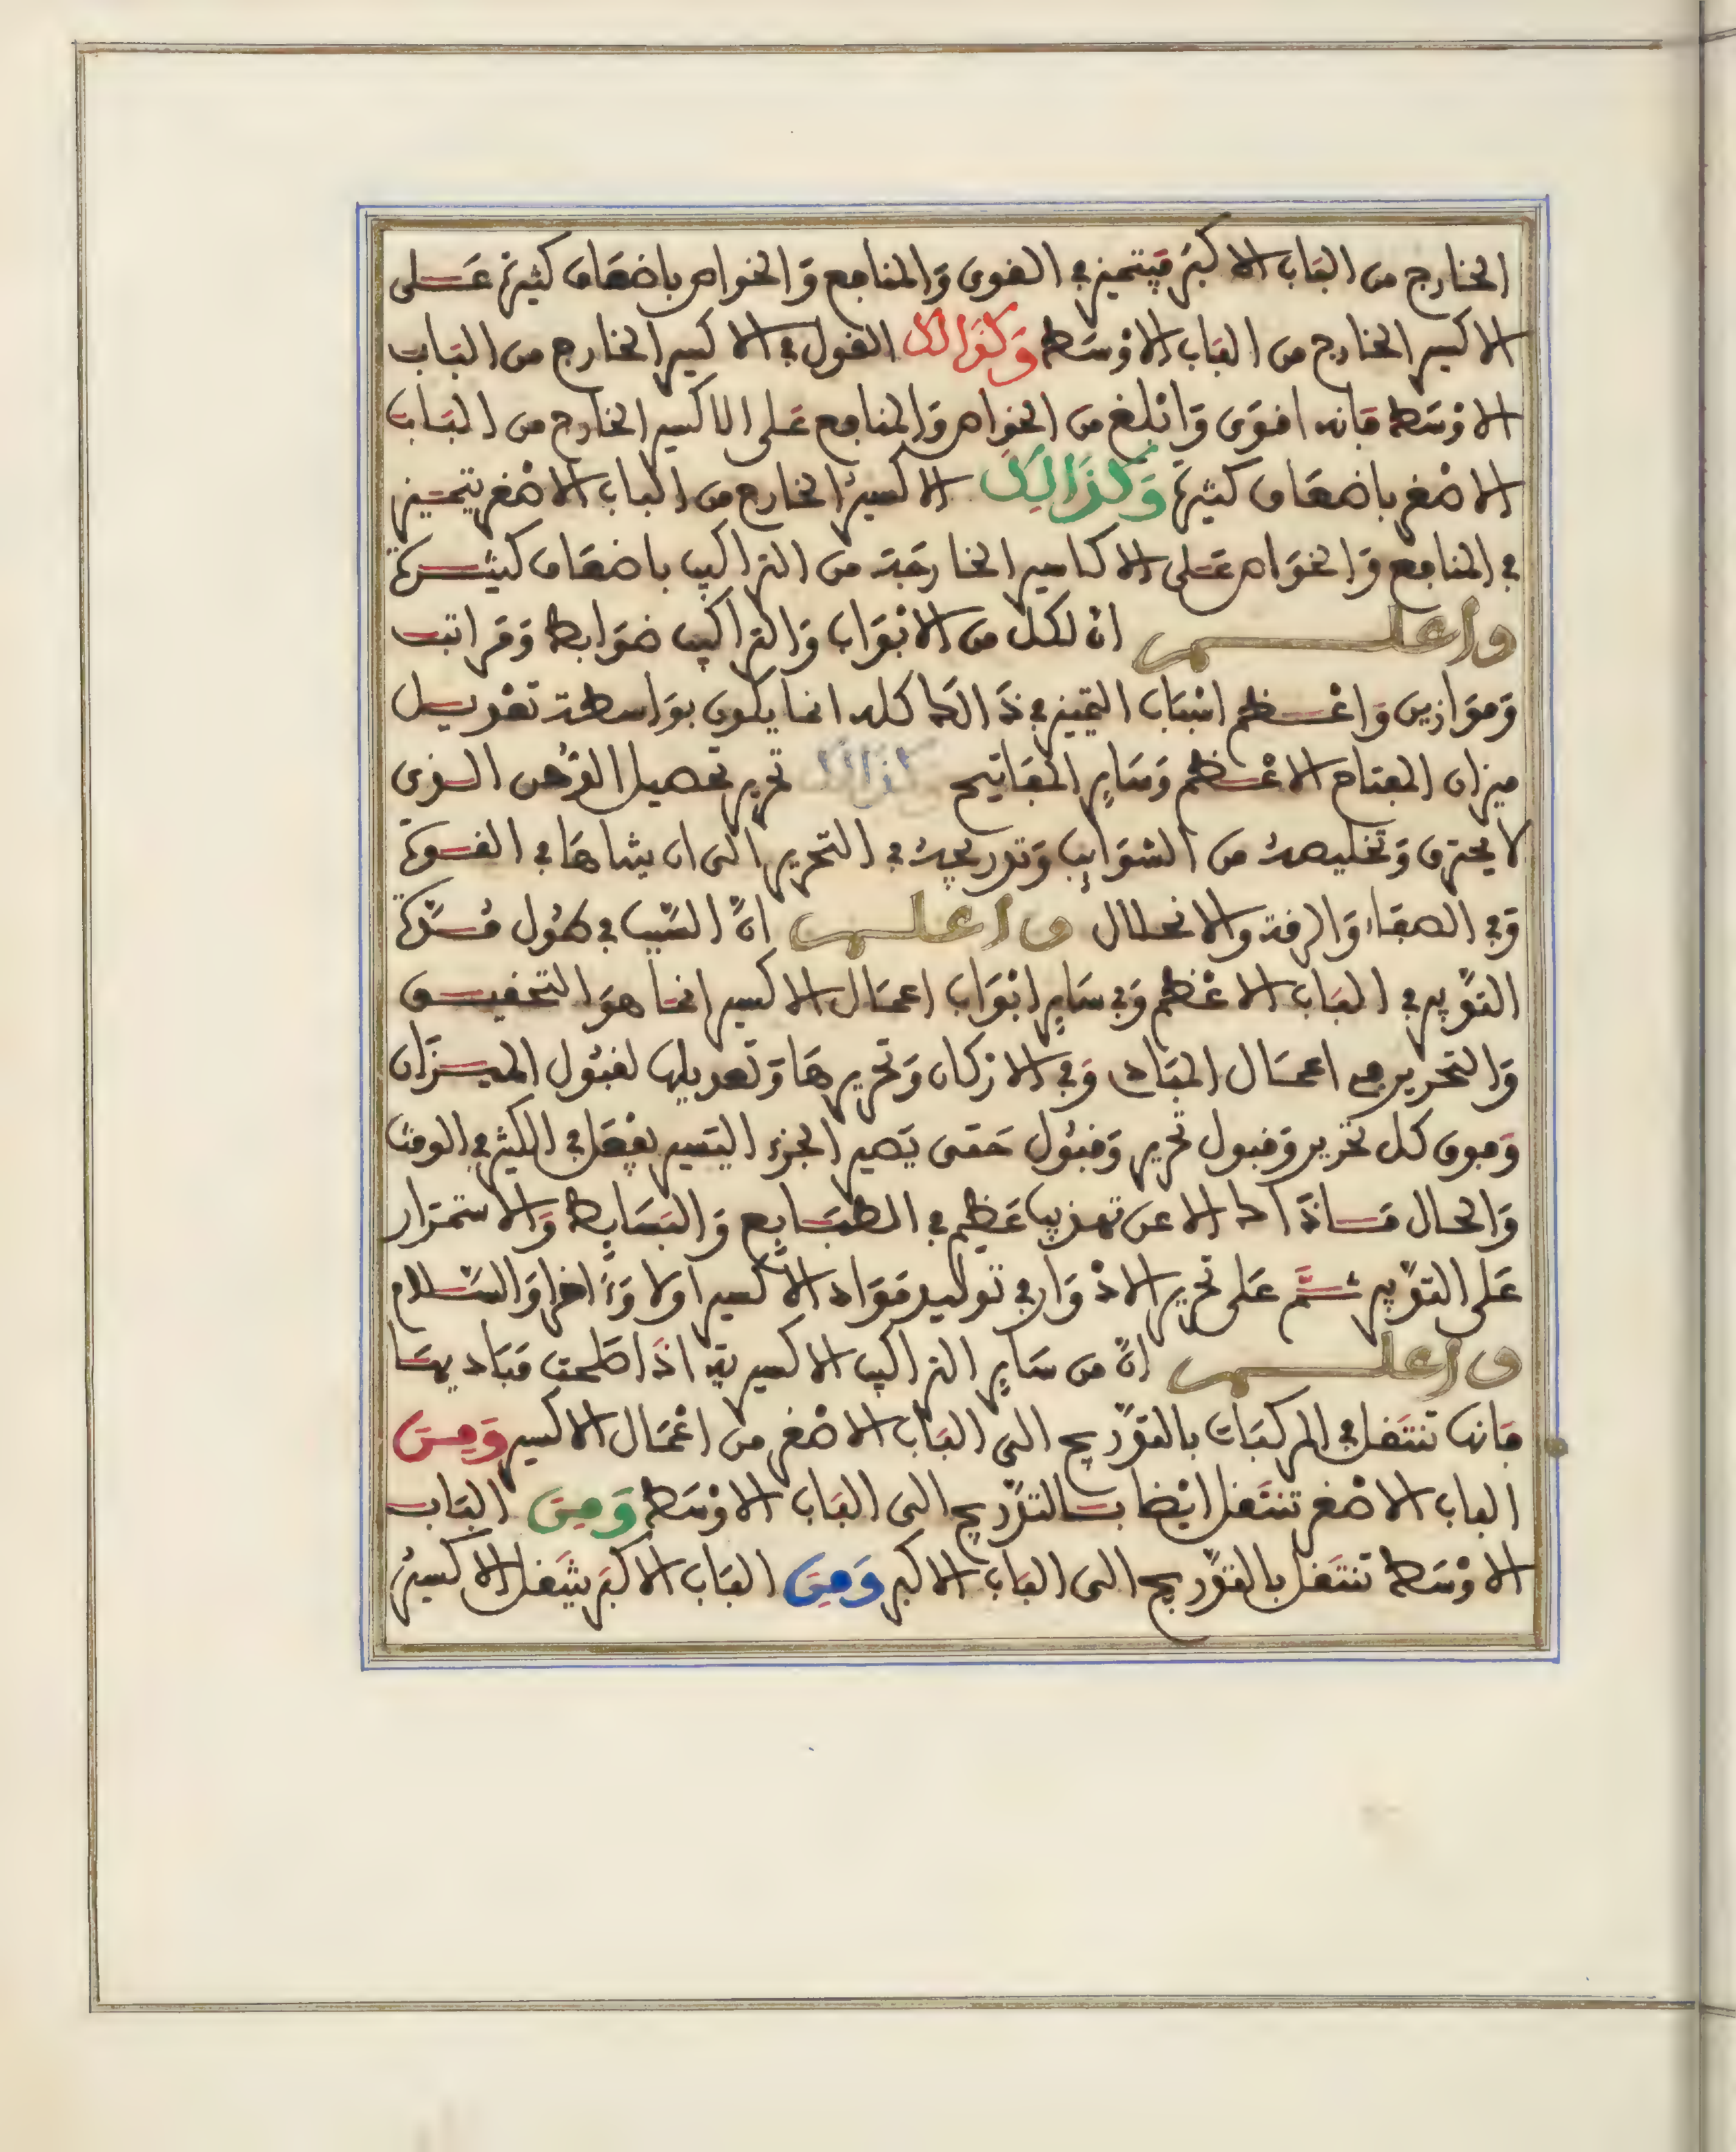 الخارج من الباب الاكبر فيتميز في القوى والمنافع والخواص باضعاف كثيرة على
الاكسير الخارج من الباب الاوسط وكذالك القول في الاكسير الخارج من الباب
الاوسط فانه اقوى وابلغ من الخواص والمنافع على الاكسير الخارج من الباب
الاصغر باضعاف كثيرة وكذالك الاكسير الخارج من الباب الاصغر يتميز
في المنافع والخواص على الاكاسير الخارجة من التراكيب باضعاف كثيرة
واعلم ان لكل من الابواب والتراكيب ضوابط ومراتب
وموازين واعظم اسباب التميز في ذالك كله انما يكون بواسطة تعديل
ميزان المفتاح الاعظم وساير المفاتيح وكذالك تحرير تحصيل الدهن الذي
لا يحترق وتخليصه من الشوايب وتدريجه في التحرير الى ان يتناها في القوة
وفي الصفاء والرقة والانحلال واعلم ان السبب في طول مدة
التدبير في الباب الاعظم وفي ساير ابواب اعمال الاكسير انما هو التحقيق
والتحرير في اعمال المبادي وفي الاركان وتحريرها وتعديلها لقبول الميزان
وفوق كل تحرير وقبول تحرير وقبول حتى يصير الجزء اليسير يفعل في الكثير في الوقت
والحال فساذالك الا عن تهذيب عظيم في الطبايع والبسايط والاستمرار
على التدبير ثم على تحرير الادوار في توليد مواد الاكسير اولا وءاخرا والسلام
واعلم ان من ساير التراكيب الاكسيرية اذا صلحت مباديها
فانها تنتقل في المركبات بالتدريج الى الباب الاصغر من اعمال الاكسير ومن
الباب الاصغر تنتقل ايضا بالتدريج الى الباب الاوسط ومن الباب
الاوسط تنتقل بالتدريج الى الباب الاكبر ومن الباب الاكبر ينتقل الاكسير